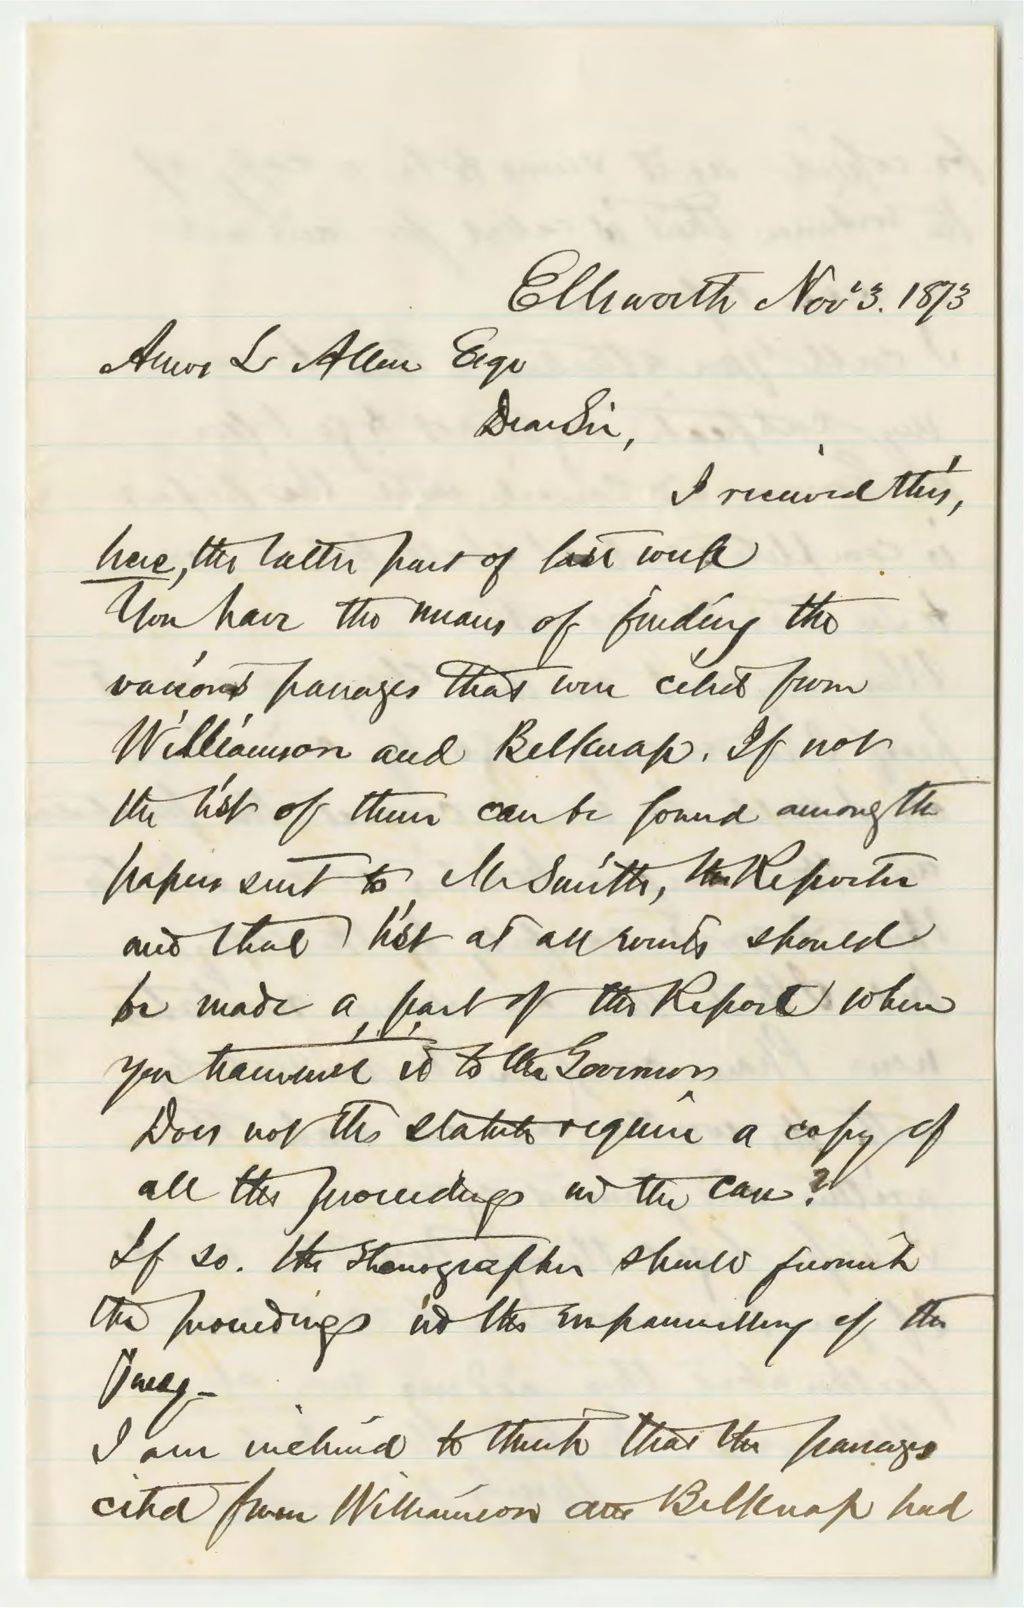 Ellsworth Nov 3. 1873
Amos L Allen Esqr
Dear Sir,
I received this,
here, the latter part of last week
You have the means of finding the
various passages that were cited from
Williamson and Belknap. If not
the list of them can be found among the
papers sent to Mr Smith, the Reporter
and that list at all events should
be made a part of the Report when
you transmit it to the Governor
Does not the statute require a copy of
all the proceedings in the case?
If so. the Stenographer should furnish
the proceedings in the empannelling of the
Jury -
I am inclined to think that the passages
cited from Williamson and Belknap had